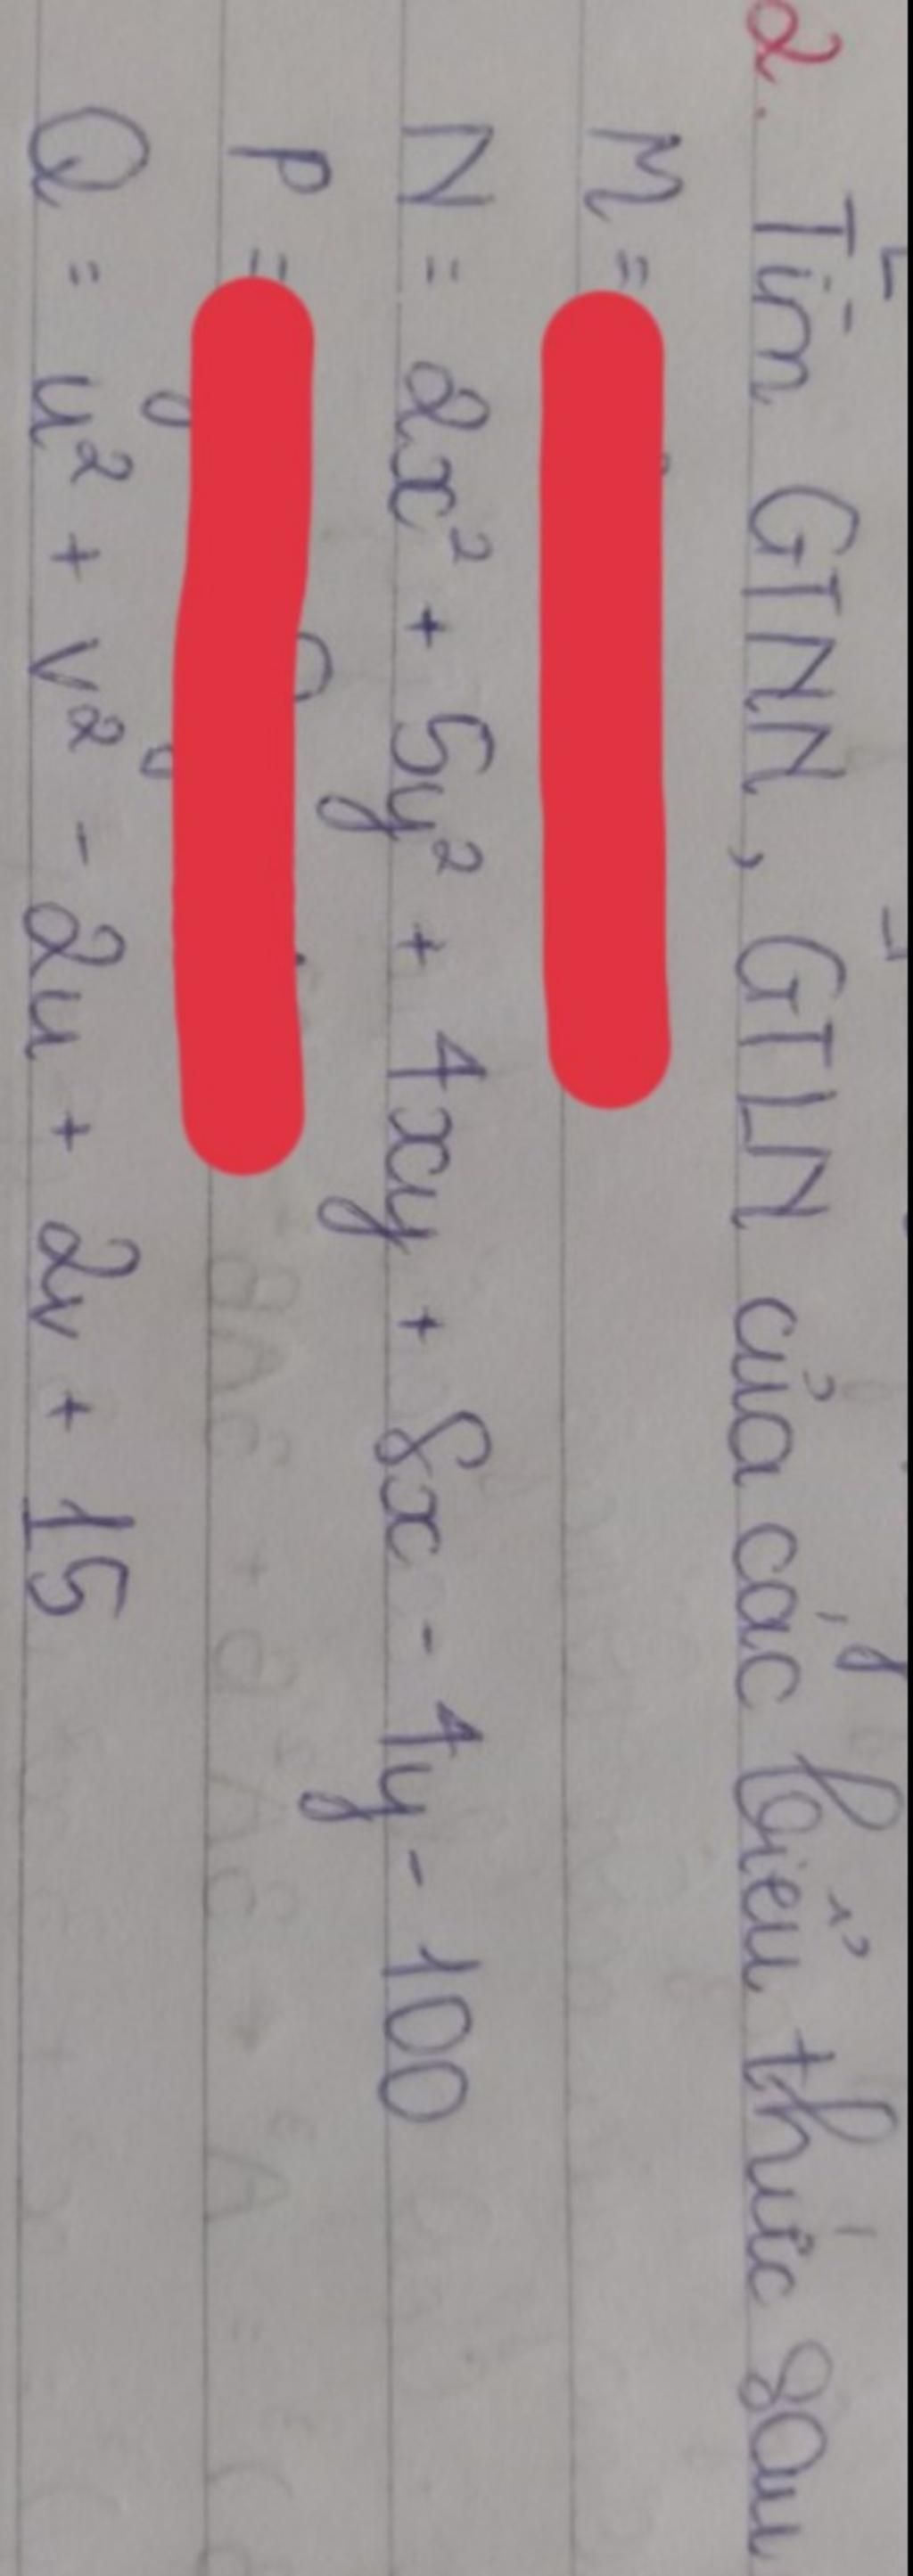 2. Tìm GTNN, GTLN của các biểu thức sau
M =
N = 2x² + 5y² + 4xy + 8x - 4y - 100
P =
Q = u² + v² - 2u + 2v + 15